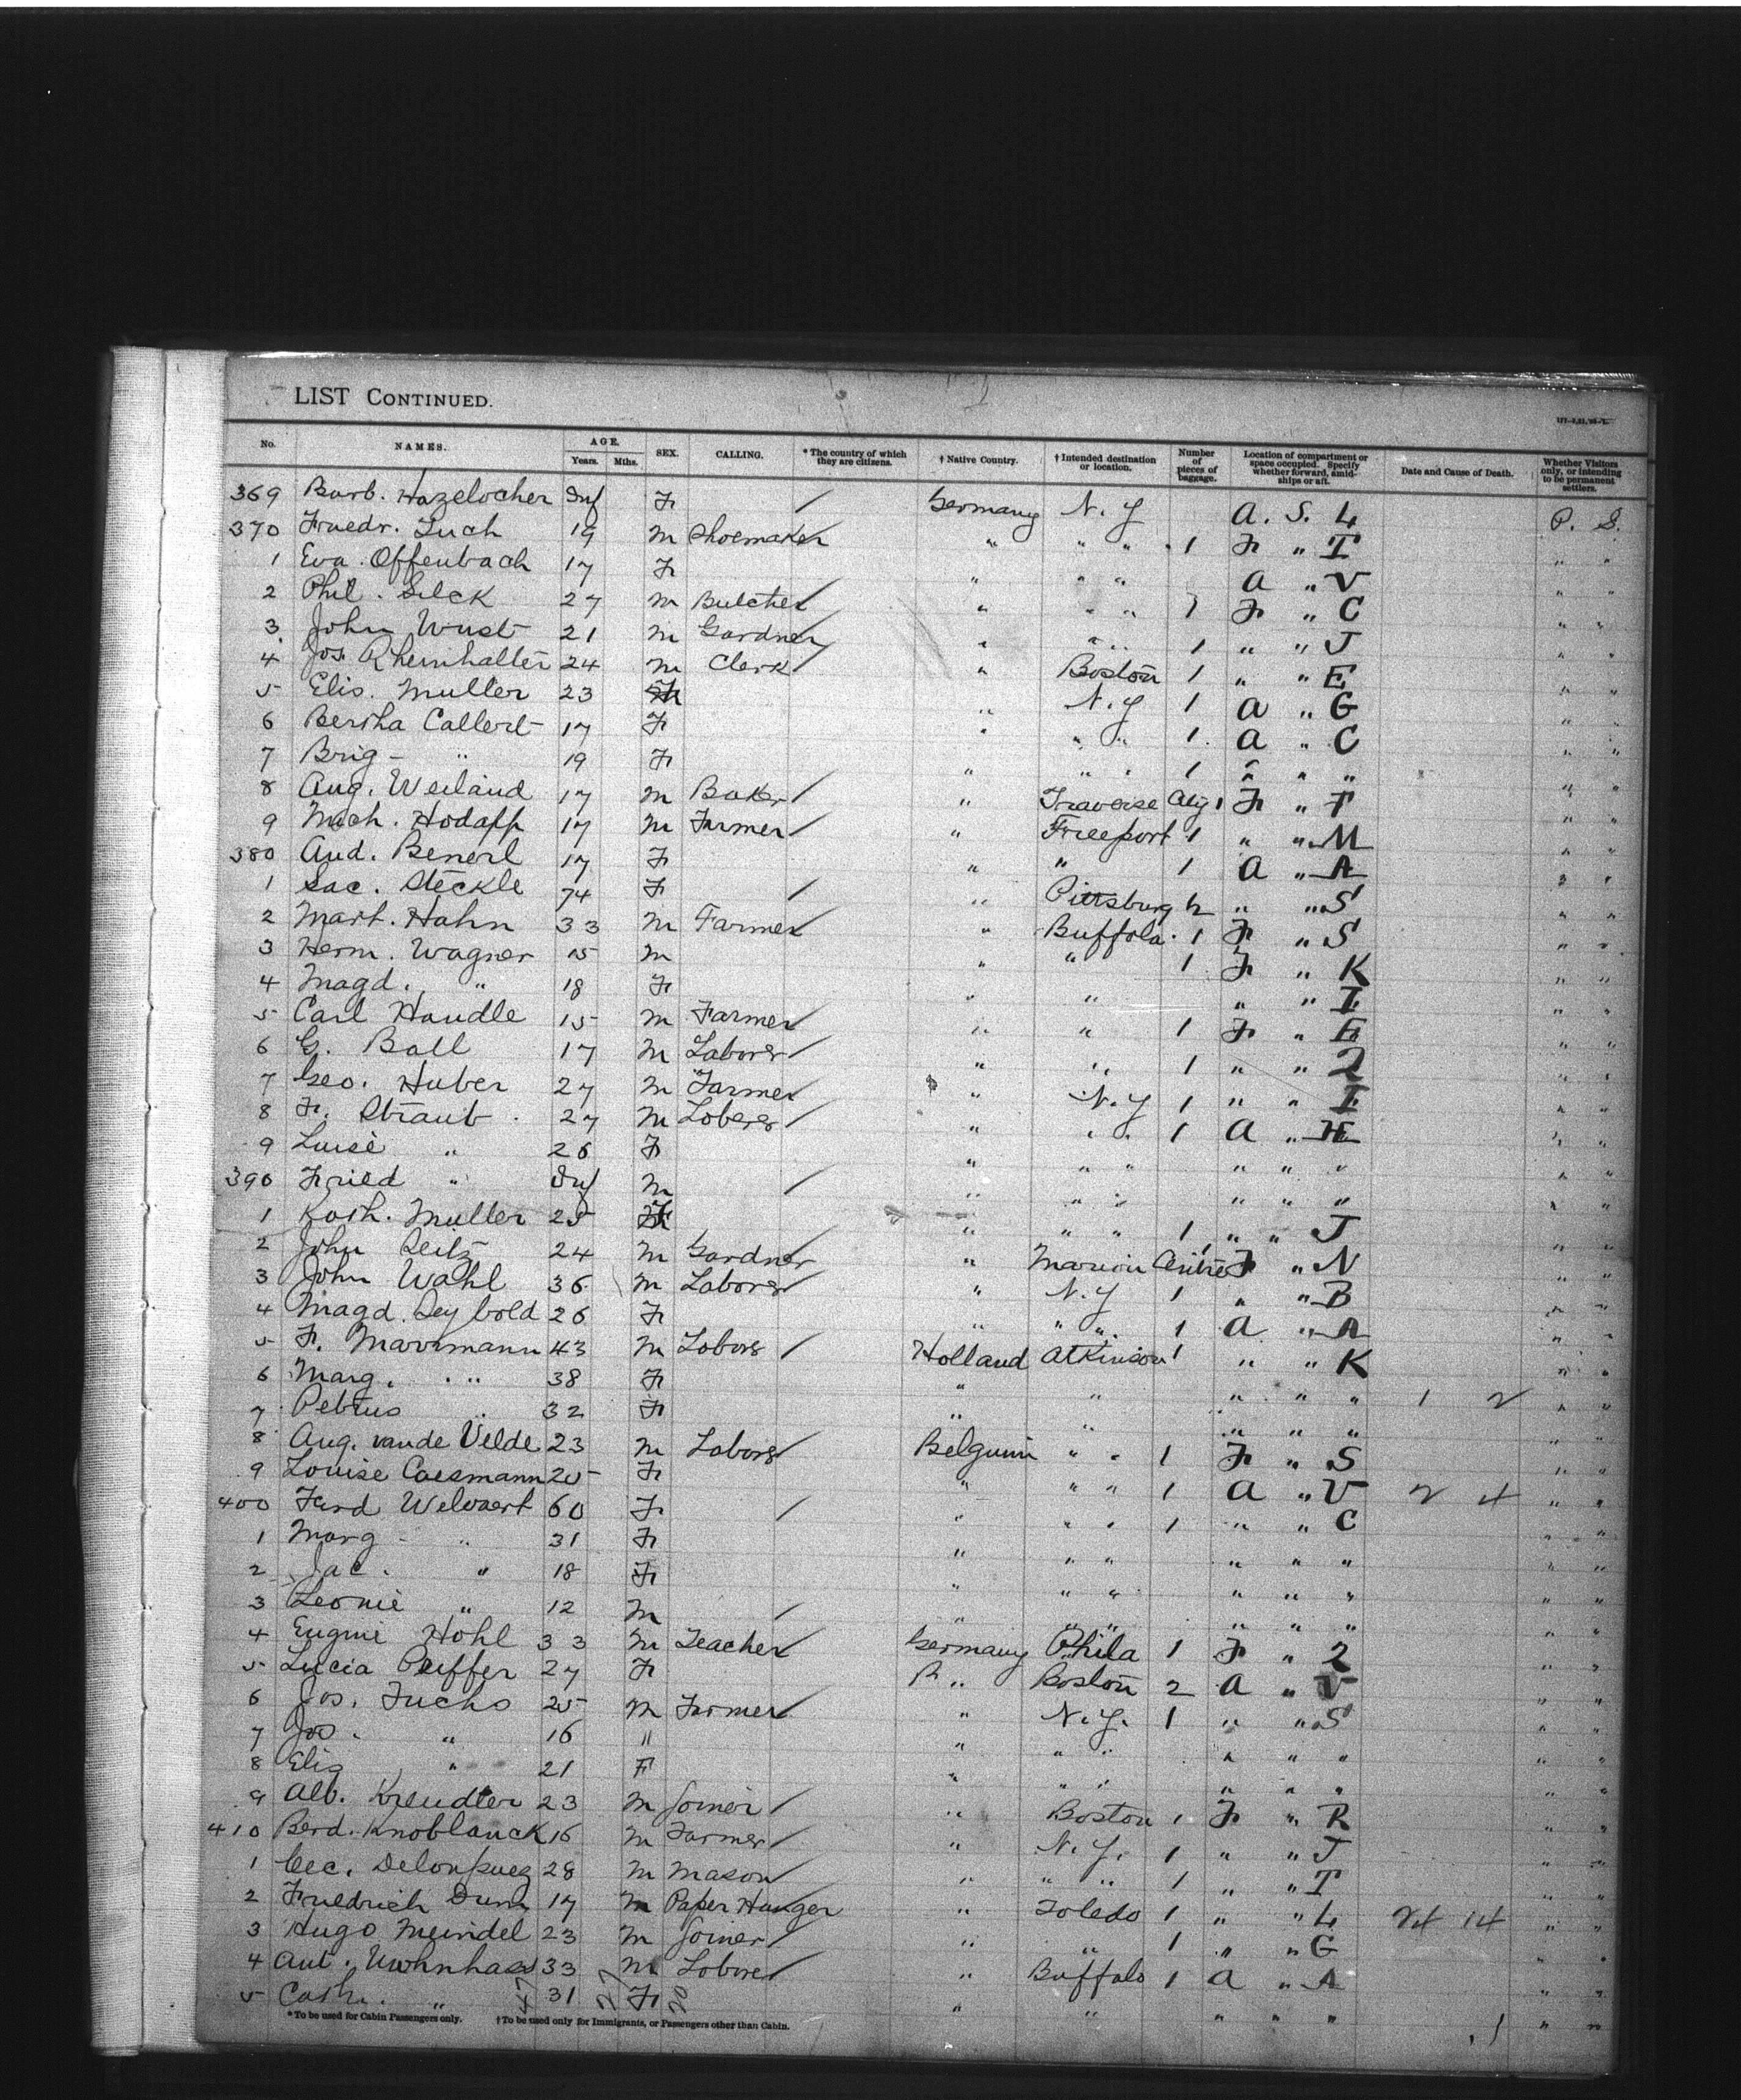 LIST CONTINUED.
No. NAMES. AGE. Years. Mths. SEX. CALLING. * The country of which they are citizens. † Native Country. † Intended destination or location. Number of pieces of baggage. Location of compartment or space occupied. Specify whether forward, amidships or aft. Date and Cause of Death. Whether Visitors only, or intending to be permanent settlers.
369 Barb. Hazelocher Inf F / Germany N. Y A. S. L P. S.
370 Friedr. Tuch 19 M Shoemaker " " " 1 F " T " "
1 Eva. Offenbach 17 F " " " A " V " "
2 Phil. Gilck 27 M Butcher " " " 1 F " C " "
3 John Wust 21 M Gardner " " " 1 " " J " "
4 Jos. Rheinhalter 24 M Clerk " Boston 1 " " E " "
5 Elis. Muller 23 " N. Y 1 A " G " "
6 Bertha Callert 17 F " " " 1 A " C " "
7 Brig - " 19 F " " " 1 " " " " "
8 Aug. Weiland 17 M Baker " Traverse City 1 F " T " "
9 Mich. Hodapp 17 M Farmer " Freeport 1 " " M " "
380 Aud. Benerl 17 F " " 1 A " A " "
1 Sac. Steckle 74 F / " Pittsburg 2 " " S " "
2 Mart. Hahn 33 M Farmer " Buffola 1 F " S " "
3 Herm. Wagner 15 M " " 1 F " K " "
4 Magd. " 18 F " " " " I " "
5 Carl Handle 15 M Farmer " " 1 F " E " "
6 G. Ball 17 M Laborer " " 1 " " 2 " "
7 Geo. Huber 27 M Farmer " N. Y 1 " " I " "
8 F. Straub 27 M Loberer " " " 1 A " H " "
9 Luise " 26 F " " " " " " " "
390 Fried " Inf M / " " " " " " " "
1 Kath. Muller 25 F " " " 1 " " J " "
2 John Seitz 24 M Gardner " Marion Centre F " N " "
3 John Wahl 36 M Laborer " N. Y 1 " " B " "
4 Magd. Seybold 26 F " " " 1 A " A " "
5 F. Marrmann 43 M Laborer / Holland Atkinson 1 " " K " "
6 Marg. " 38 F " " " " " 1 2 " "
7 Petrus " 32 F " " " " " " "
8 Aug. vande Velde 23 M Laborer Belguim " " 1 F " S " "
9 Louise Caesmann 25 F " " " 1 A " V 2 4 " "
400 Ferd Welvaert 60 F / " " " 1 " " C " "
1 Marg - " 31 F " " " " " " " "
2 Jac. " 18 F " " " " " " " "
3 Leonie " 12 M / " " " " " " " "
4 Eugine Hohl 33 M Teacher Germany Phila 1 F " 2 " "
5 Lucia Peiffer 27 F " Boston 2 A " V " "
6 Jos. Fuchs 25 M Farmer " N. Y. 1 " " S " "
7 Jos. " 16 " " " " " " " " "
8 Elis " 21 F " " " " " " " "
9 Alb. Kreudter 23 M Joiner / " Boston 1 F " R " "
410 Berd. Knoblauck 16 M Farmer " N. Y. 1 " " J " "
1 Cec. 28 M Mason " " " 1 " " T " "
2 Friedrich 17 M Paper Hanger " Toledo 1 " " L 24 14 " "
3 Hugo Meindel 23 M Joiner " " 1 " " G " "
4 Ant. 33 M Laborer " Buffalo 1 A " A " "
5 Cath. " 31 F " " " " " " "
* To be used for Cabin Passengers only. † To be used only for Immigrants, or Passengers other than Cabin.